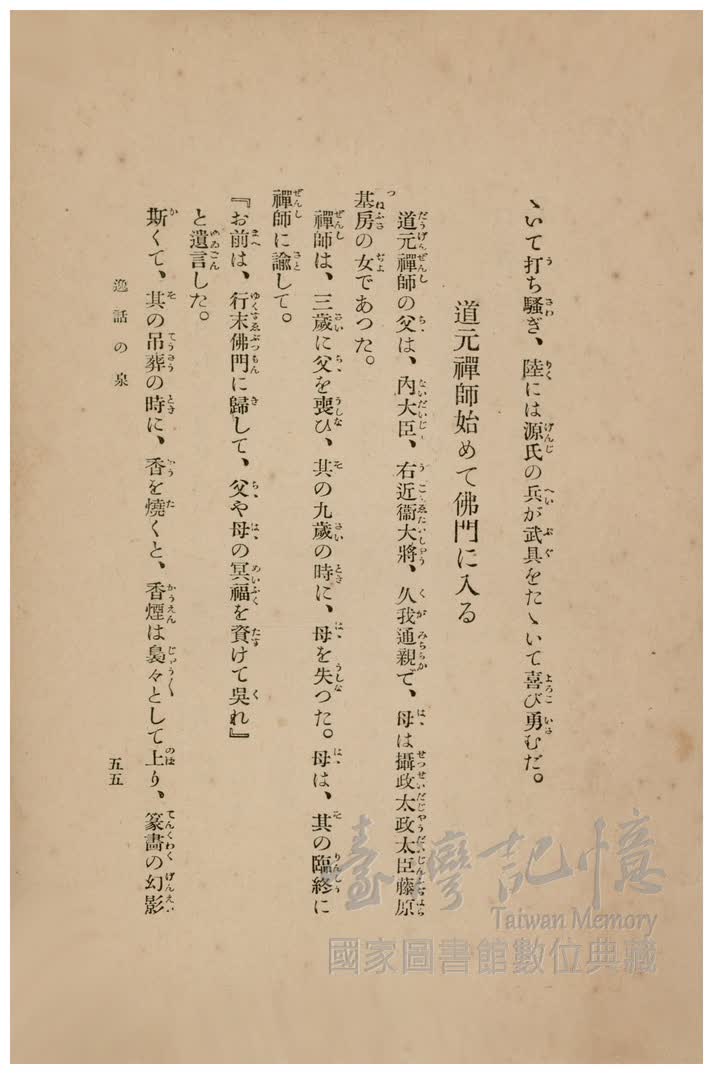 ゝいて打ち騷ぎ、陸には源氏の兵が武具をたゝいて喜び勇むだ。
道元禪師始めて佛門に入る
道元禪師の父は、內大臣、右近衞大將、久我通親で、母は攝政太政太臣藤原
基房の女であつた。
禪師は、三歲に父を喪ひ、其の九歲の時に、母を失つた。母は、其の臨終に
禪師に諭して。
『お前は、行末佛門に歸して、父や母の冥福を資けて吳れ』
と遺言した。
斯くて、其の吊葬の時に、香を燒くと、香煙は裊々として上り、篆畵の幻影
逸話の泉
五五
臺灣記憶
Taiwan Memory
國家圖書館數位典藏